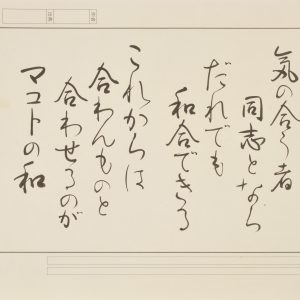 気の合う者
同志となら
だれでも
和合できる
これからは
合わんものと
合わせるのが
マコトの和